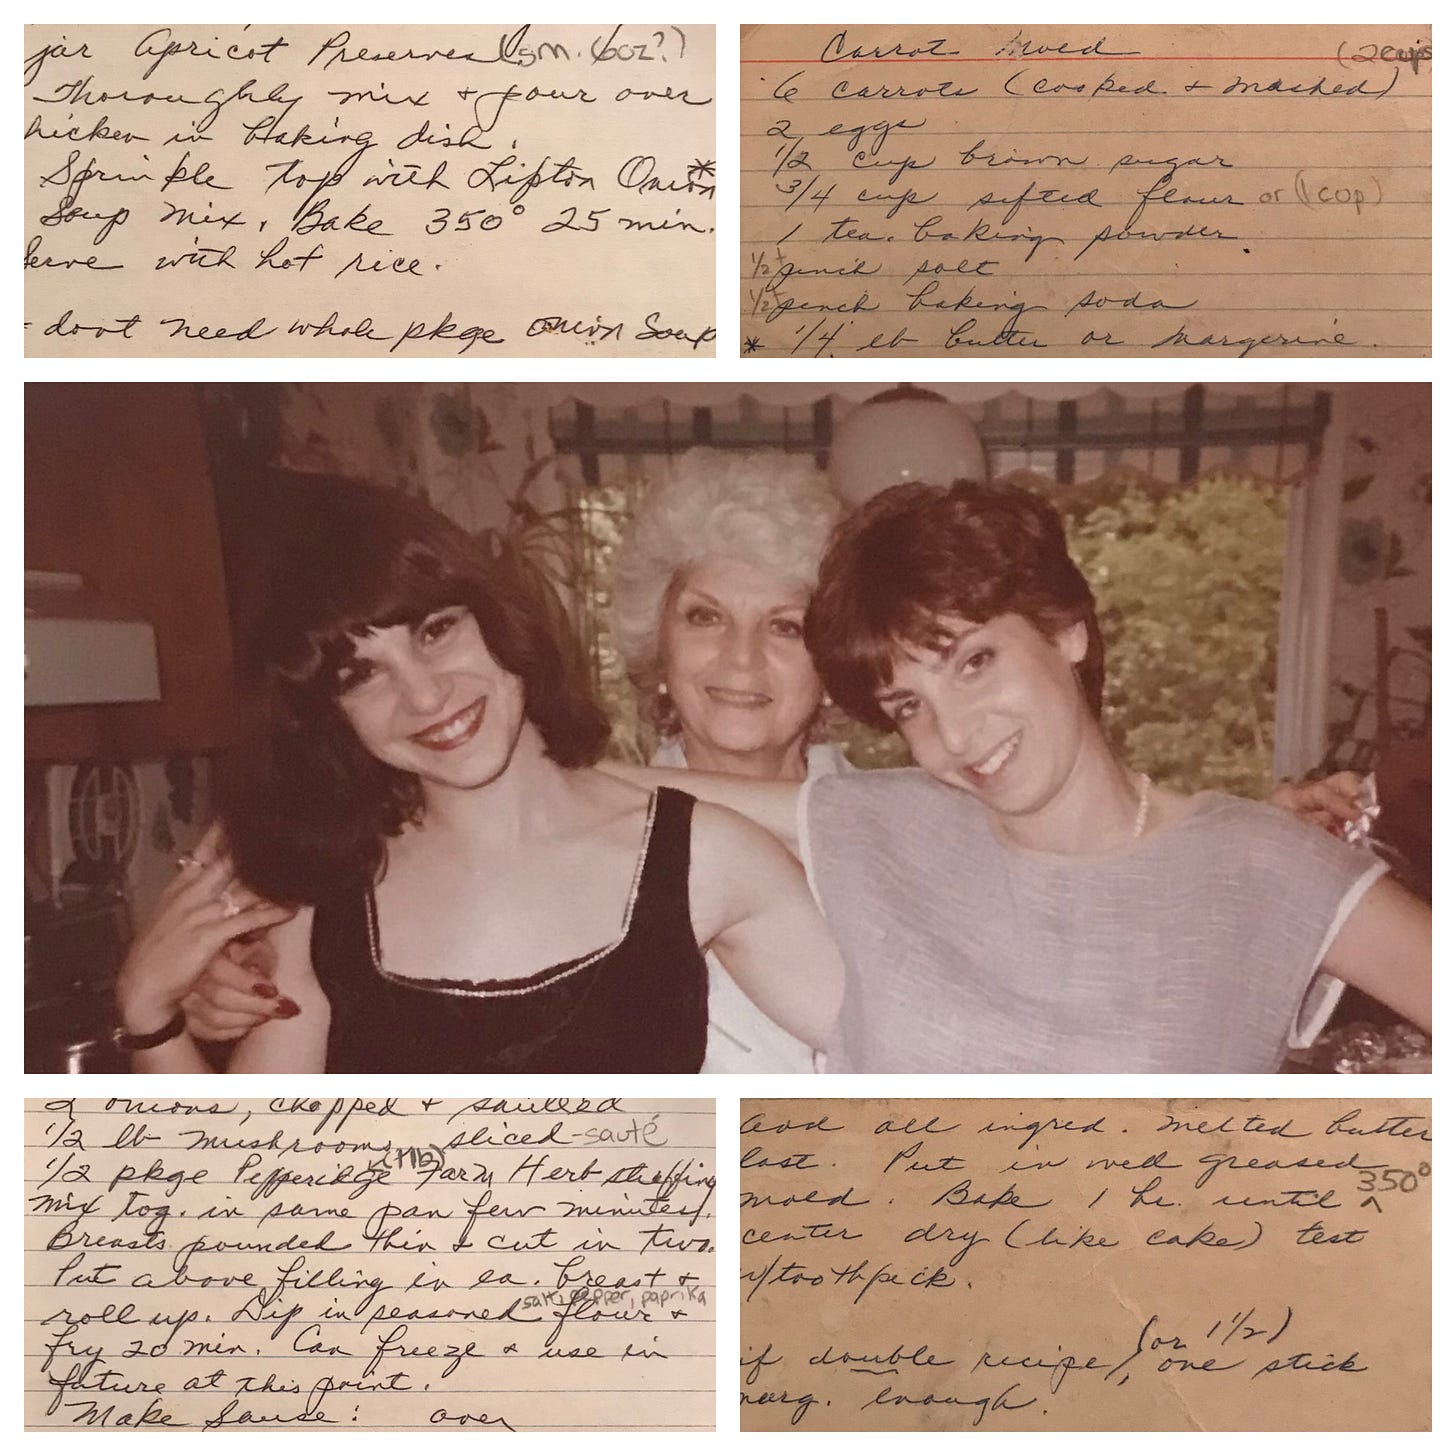 jar Apricot Preserves (sm. 6oz?)
Thoroughly mix + pour over
hicken in baking dish.
Sprinkle top with Lipton Onion*
Soup Mix. Bake 350° 25 min.
Serve with hot rice.
- dont need whole pkge onion Soup
Carrot Mold
(2 cups
6 carrots (cooked + mashed)
2 eggs
1/2 cup brown sugar
3/4 cup sifted flour or (1 cup)
1 tea. baking powder
1/2 t pinch salt
1/2 t pinch baking soda
* 1/4 lb butter or margerine.
2 onions, chopped + sautéed
1/2 lb mushrooms, sliced - sauté
1/2 pkge Pepperidge Farm Herb stuffing
mix tog. in same pan few minutes.
Breasts pounded thin & cut in two.
Put above filling in ea. breast +
roll up. Dip in seasoned flour +
salt, pepper, paprika
fry 20 min. Can freeze & use in
future at this point.
Make Sauce: over
add all ingred. Melted butter
last. Put in well greased
mold. Bake 1 hr. until
350°
center dry (like cake) test
w/toothpick.
if double recipe, (or 1 1/2) one stick
marg. enough.